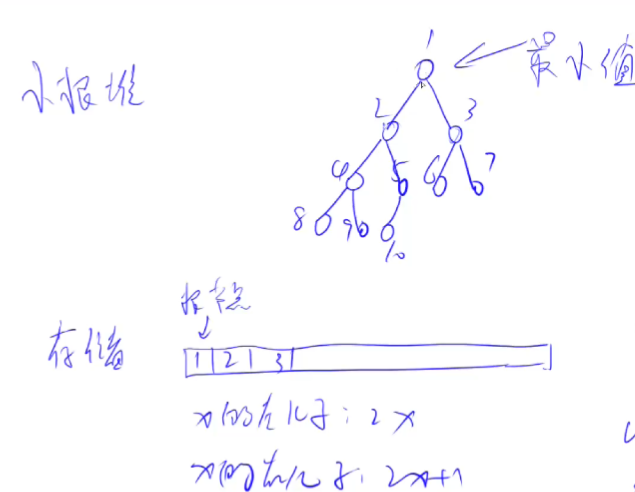 小根堆
最小值
1
2 3
4 5 6 7
8 9 10
根节点
存储
1 2 3
x的左儿子: 2x
x的右儿子: 2x+1